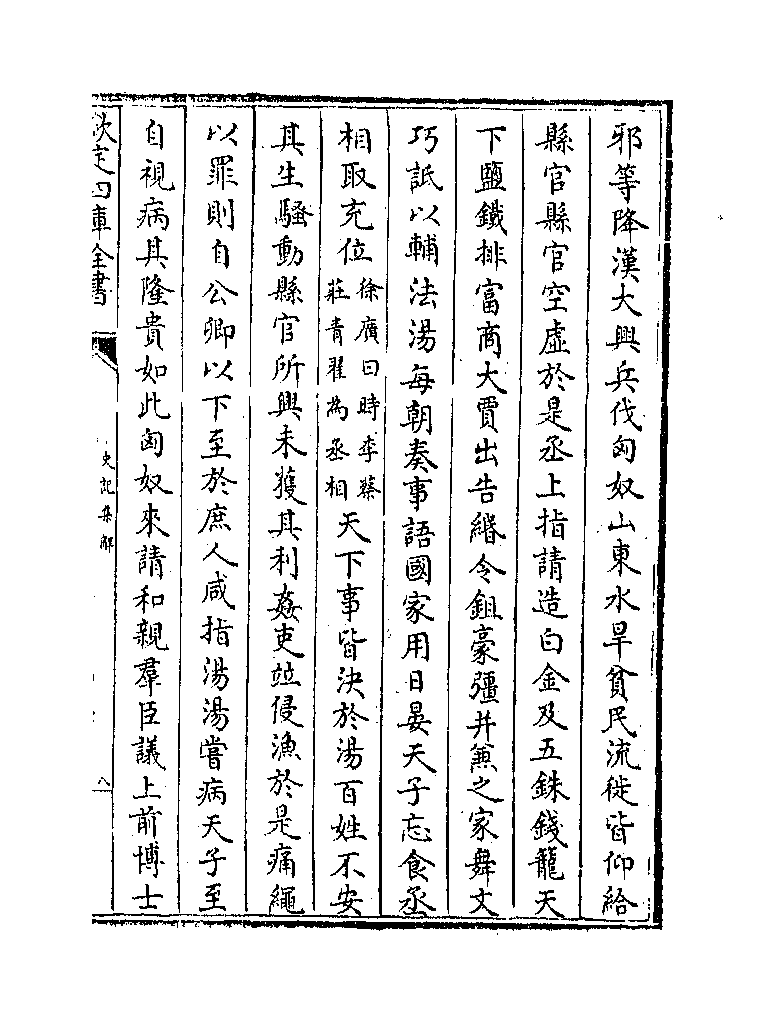 邪等降漢大興兵伐匈奴山東水旱貧民流徙皆仰給
縣官縣官空虛於是丞上指請造白金及五銖錢籠天
下鹽鐵排富商大賈出告緡令鉏豪彊并兼之家舞文
巧詆以輔法湯每朝奏事語國家用日晏天子忘食丞
相取充位
徐廣曰時李蔡
莊青翟為丞相
天下事皆決於湯百姓不安
其生騷動縣官所興未獲其利姦吏竝侵漁於是痛繩
以罪則自公卿以下至於庶人咸指湯湯嘗病天子至
自視病其隆貴如此匈奴來請和親羣臣議上前博士
欽定四庫全書
史記集解
八